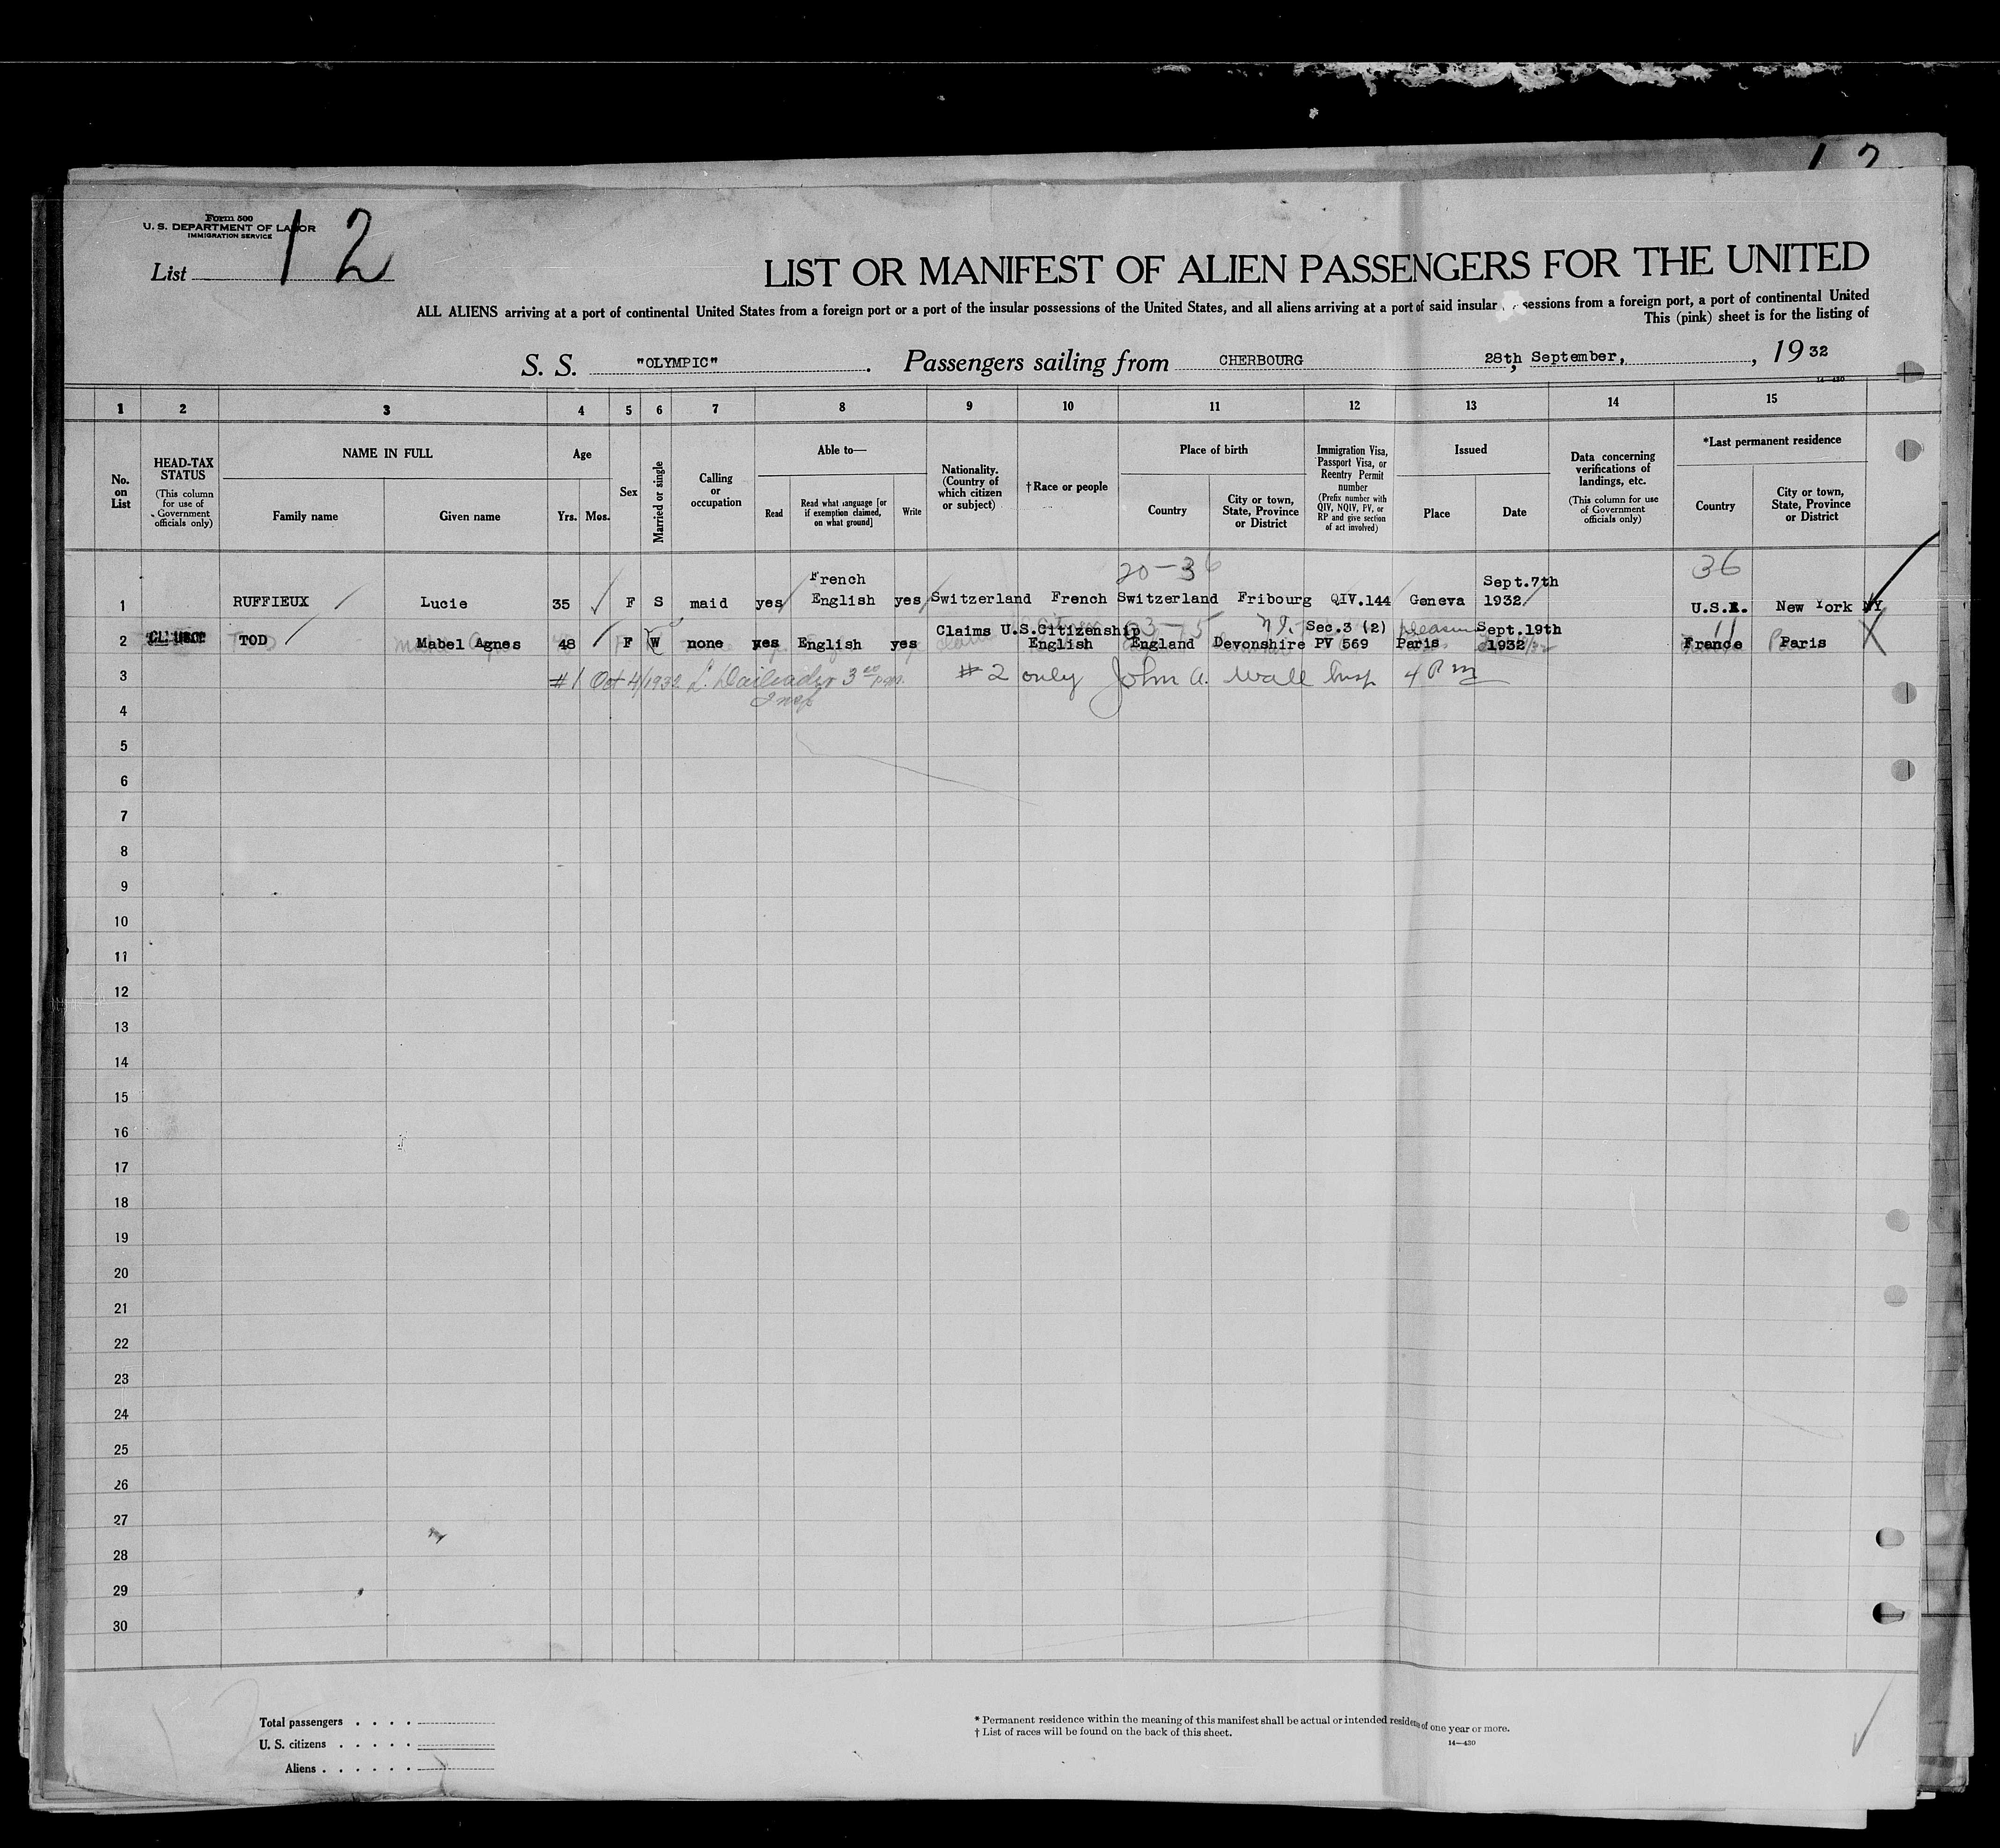 12
Form 500
U. S. DEPARTMENT OF LABOR
IMMIGRATION SERVICE
List 12
LIST OR MANIFEST OF ALIEN PASSENGERS FOR THE UNITED
ALL ALIENS arriving at a port of continental United States from a foreign port or a port of the insular possessions of the United States, and all aliens arriving at a port of said insular sessions from a foreign port, a port of continental United
This (pink) sheet is for the listing of
S. S. "OLYMPIC". Passengers sailing from CHERBOURG, 28th September, , 1932
14—430
1 2 3 4 5 6 7 8 9 10 11 12 13 14 15
No. on List
HEAD-TAX STATUS (This column for use of Government officials only)
NAME IN FULL
Family name Given name
Age
Yrs. Mos.
Sex
Married or single
Calling or occupation
Able to—
Read Read what language [or if exemption claimed, on what ground] Write
Nationality. (Country of which citizen or subject)
†Race or people
Place of birth
Country City or town, State, Province or District
Immigration Visa, Passport Visa, or Reentry Permit number (Prefix number with QIV, NQIV, PV, or RP and give section of act involved)
Issued
Place Date
Data concerning verifications of landings, etc. (This column for use of Government officials only)
*Last permanent residence
Country City or town, State, Province or District
French 20-36 Sept.7th 36
1 RUFFIEUX Lucie 35 F S maid yes English yes Switzerland French Switzerland Fribourg QIV.144 Geneva 1932 U.S.A. New York NY
Claims U.S.Citizenship Sec.3 (2) pleasure Sept.19th
2 TOD Mabel Agnes 48 F W none yes English yes English England Devonshire PV 569 Paris 1932 France Paris
3 #1 Oct 4/1932 3 00 p.m. #2 only John A. Wall Insp 4 P m
Insp
4
5
6
7
8
9
10
11
12
13
14
15
16
17
18
19
20
21
22
23
24
25
26
27
28
29
30
Total passengers . . . .
U. S. citizens . . . . .
Aliens . . . . . .
* Permanent residence within the meaning of this manifest shall be actual or intended residence of one year or more.
† List of races will be found on the back of this sheet.
14—430